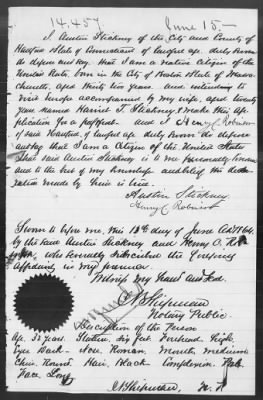 14.457 June 15,
I, Austin Stickney of the City and County of
Hartford State of Connecticut of lawful age duly sworn
do depose and say that I am a native Citizen of the
United States, born in the City of Boston State of Massa-
chusetts, aged thirty two years, and intending to
visit Europe accompanied by my wife, aged twenty
years, named Harriet T. Stickney, & make this ap-
plication for a passport. And I Henry C. Robinson
of said Hartford, of lawful age duly sworn do depose
and say that I am a Citizen of the United States
That said Austin Stickney is to me personally known
and to the best of my knowledge and belief his decla-
ration made by him is true.
Austin Stickney
Henry C Robinson
Sworn to before me, this 13th day of June A.D. 1864
by the said Austin Stickney and Henry C. Rob-
inson, who severally subscribed the foregoing
Affidavit in my presence.
Witness my Hand and Seal.
N Shipman
Notary Public.
Description of the Person
Age. 32 years. Stature. Six feet Forehead High.
Eyes Dark - Nose Roman. Mouth, medium
Chin. Round. Hair, Black Complexion. Pale
Face Long
N Shipman N. P.